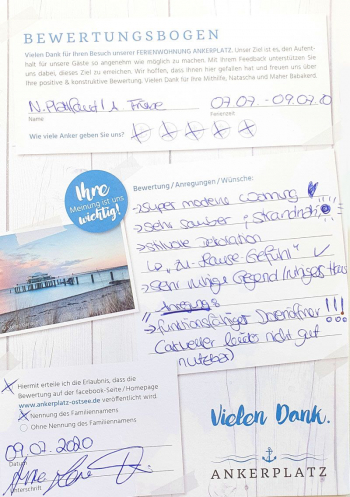 BEWERTUNGSBOGEN
Vielen Dank für Ihren Besuch unserer FERIENWOHNUNG ANKERPLATZ. Unser Ziel ist es, den Aufent-
halt für unsere Gäste so angenehm wie möglich zu machen. Mit Ihrem Feedback unterstützen Sie
uns dabei, dieses Ziel zu erreichen. Wir hoffen, dass Ihnen hier gefallen hat und freuen uns über
Ihre positive & konstruktive Bewertung. Vielen Dank für Ihre Mithilfe, Natascha und Maher Babakerd.
07.07. - 09.07.20
Name
Ferienzeit
Wie viele Anker geben Sie uns?
Ihre
Meinung ist uns
wichtig!
Bewertung / Anregungen / Wünsche:
-> super moderne Wohnung
-> sehr sauber, strandnah
-> stilvolle Dekoration
"zu-Hause-Gefühl"
-> sehr ruhige Gegend / ruhiges Haus
-> funktionsfähiger Dosenöffner !!!
(aktueller leider nicht gut
nutzbar)
Hiermit erteile ich die Erlaubnis, dass die
Bewertung auf der facebook-Seite / Homepage
www.ankerplatz-ostsee.de veröffentlicht wird.
Nennung des Familiennamens
Ohne Nennung des Familiennamens
09.07.2020
Datum
Unterschrift
Vielen Dank.
ANKERPLATZ